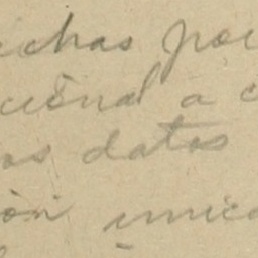 chas por
cional a c
os datos
ión única